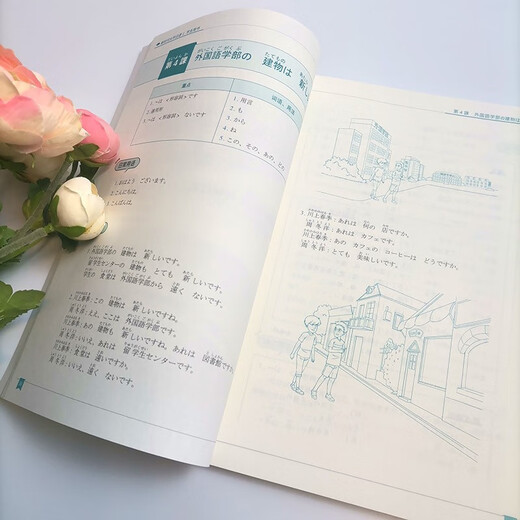 第4課 外国語学部の 建物は 新し
重点
1.～は ＜形容詞＞です
2.連用形
3.～は ＜形容詞＞ないです
1.用言
2.も
3.から
4.ね
5.この、その、あの、どの
1.おはよう ございます。
2.こんにちは。
3.こんばんは。
外国語学部の 建物は 新しいです。
留学生センターの 建物も とても 新しいです。
学生の 食堂は 外国語学部から 遠く ないです。
2.川上春季：この 建物は 新しいですね。
冬洋：ええ、ここは 外国語学部です。
川上春季：あの 建物も 新しいですね。あれは 図書館ですか
冬洋：いいえ、あれは 留学生センターです。
川上春季：食堂は 遠いですか。
冬洋：いいえ、遠く ないです。
第4課 外国語学部の建物は
3.川上春季：あれは 何の 店ですか。
冬洋：あれは カフェです。
川上春季：あの カフェの コーヒーは どうですか。
冬洋：とても 美味しいです。